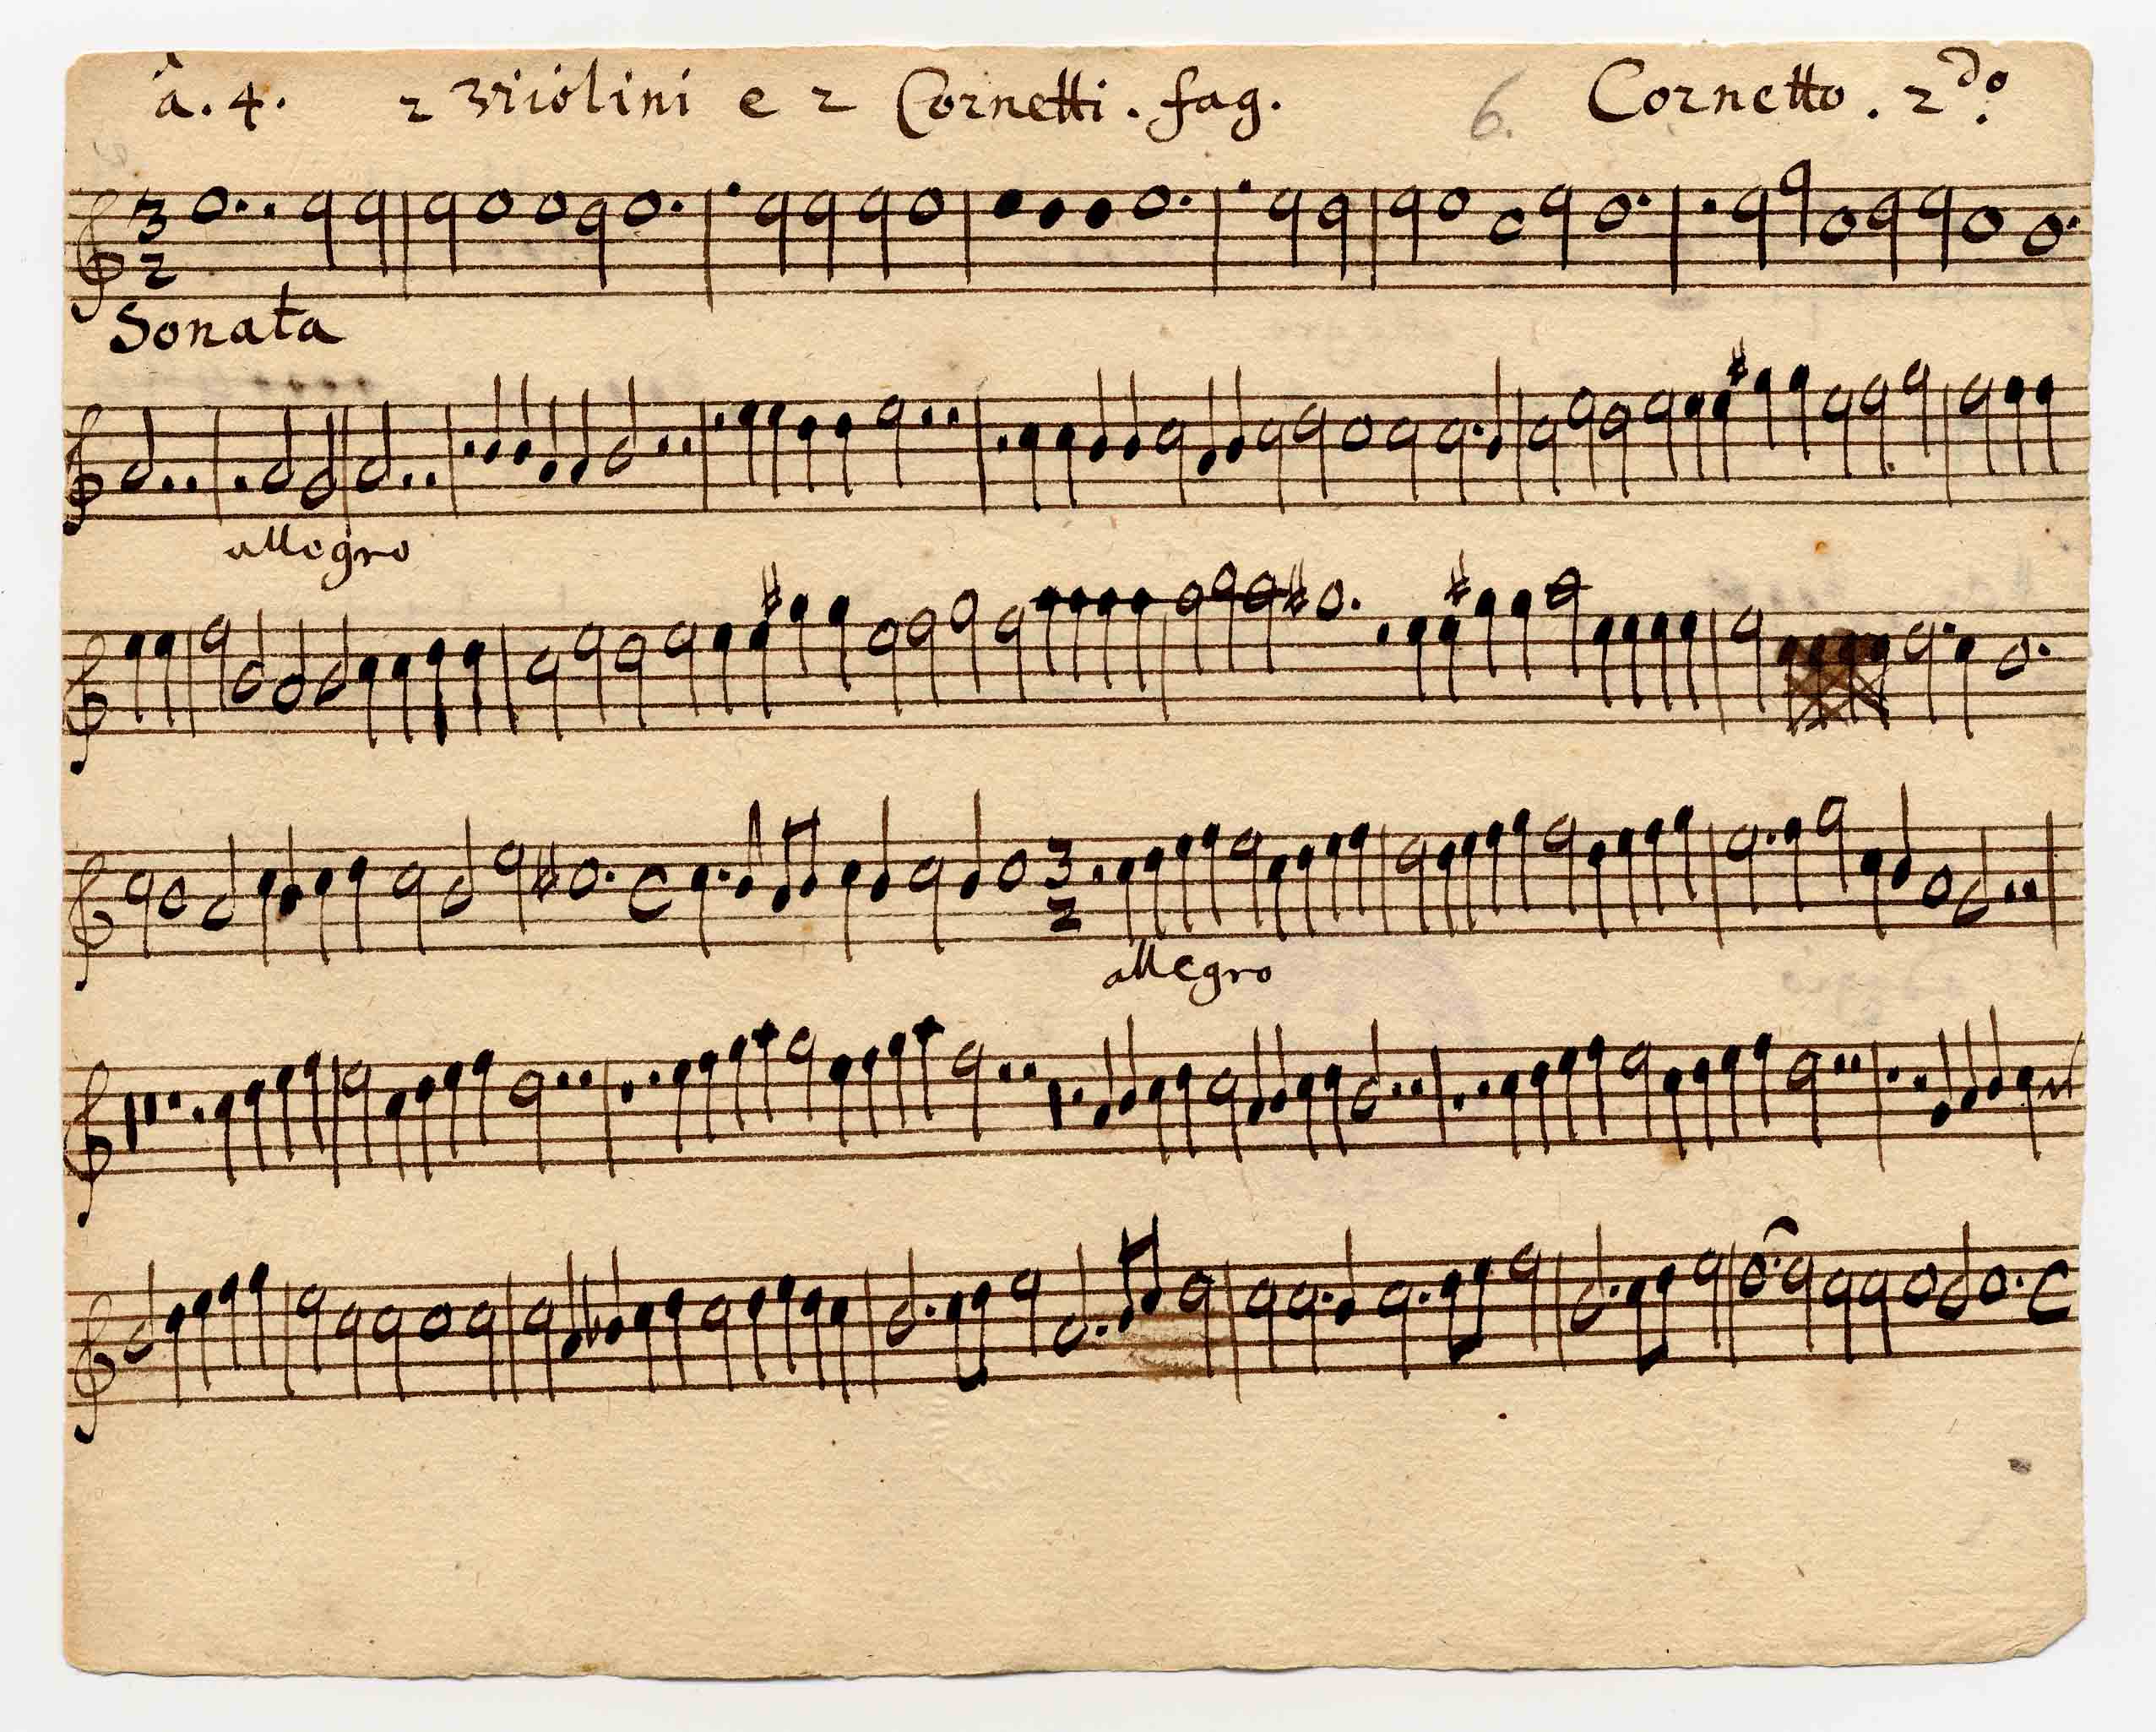 â. 4. 2 Violini e 2 Cornetti. fag. 6. Cornetto. 2do.
3
2
Sonata
allegro
3
2
allegro